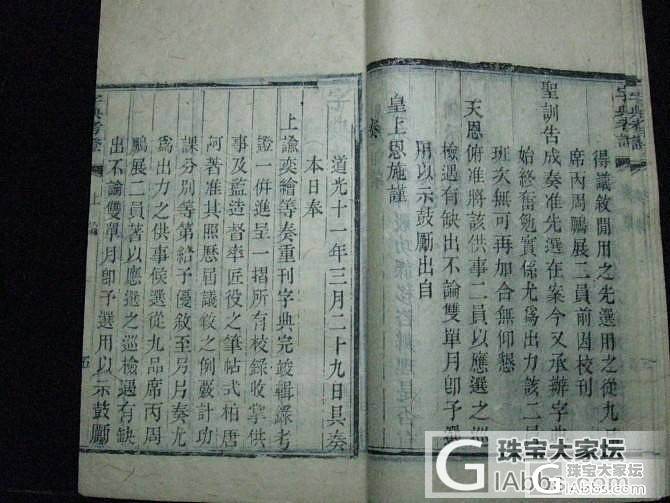 字典考證
得議敘開用之先選用之從九品
席丙周鵬展二員前因校刊
聖訓告成奏准先選在案今又承辦字典
始終奮勉實係尤爲出力該二員
班次無可再加合無仰懇
天恩俯准將該供事二員以應選之巡
檢遇有缺出不論雙單月卽予選
用以示鼓勵出自
皇上恩施謹
奏
道光十一年三月二十九日具奏
本日奉
上諭奕繪等奏重刊字典完竣輯錄考
證一併進呈一摺所有校錄收掌供
事及監造督率匠役之筆帖式柏唐
阿著准其照歷屆議敘之例覈計功
課分別等第給予優敘至另片奏尤
爲出力之供事候選從九品席丙周
鵬展二員著以應選之巡檢遇有缺
出不論雙單月卽予選用以示鼓勵
字典考證
上
五
珠宝大家坛
GIABBS.com
珠宝大家坛
GIABBS.com